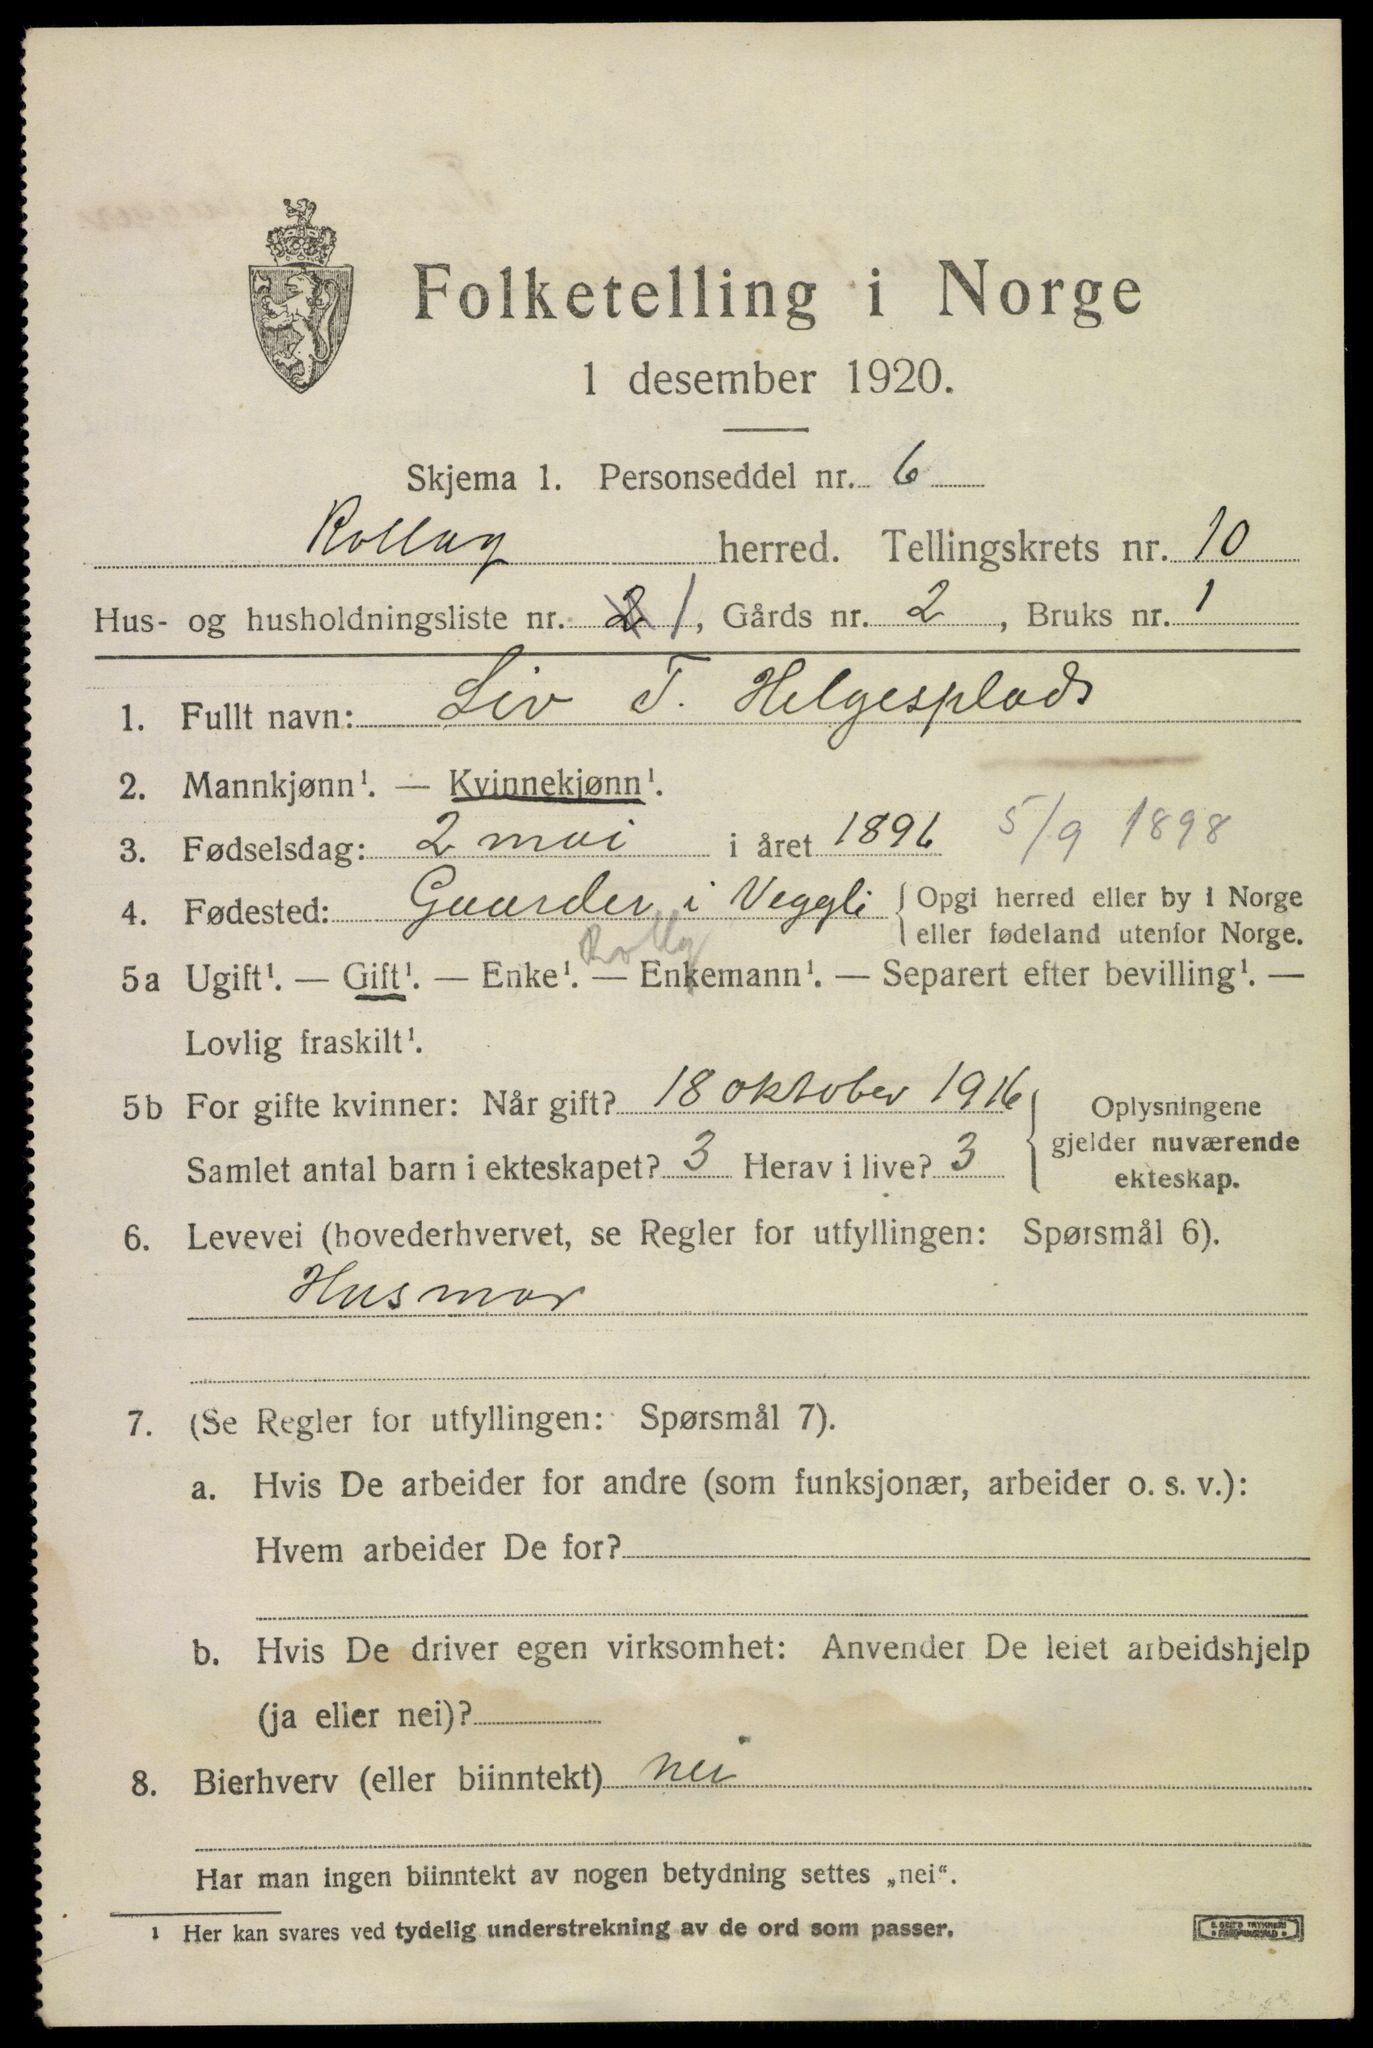 Folketelling i Norge
1 desember 1920.
Skjema 1. Personseddel nr. 6
Rollag herred. Tellingskrets nr. 10
Hus- og husholdningsliste nr. 2 1, Gårds nr. 2, Bruks nr. 1
1. Fullt navn: Liv T. Helgesplads
2. Mannkjønn¹. — Kvinnekjønn¹.
3. Fødselsdag: 2 mai i året 1896 5/9 1898
4. Fødested: Gaarder i Veggli { Opgi herred eller by i Norge
eller fødeland utenfor Norge.
Rollag
5a Ugift¹. — Gift¹. — Enke¹. — Enkemann¹. — Separert efter bevilling¹. —
Lovlig fraskilt¹.
5b For gifte kvinner: Når gift? 18 oktober 1916 { Oplysningene
gjelder nuværende
Samlet antal barn i ekteskapet? 3 Herav i live? 3 ekteskap.
6. Levevei (hovederhvervet, se Regler for utfyllingen: Spørsmål 6).
Husmor
7. (Se Regler for utfyllingen: Spørsmål 7).
a. Hvis De arbeider for andre (som funksjonær, arbeider o. s. v.):
Hvem arbeider De for?
b. Hvis De driver egen virksomhet: Anvender De leiet arbeidshjelp
(ja eller nei)?
8. Bierhverv (eller biinntekt) nei
Har man ingen biinntekt av nogen betydning settes „nei“.
¹ Her kan svares ved tydelig understrekning av de ord som passer.